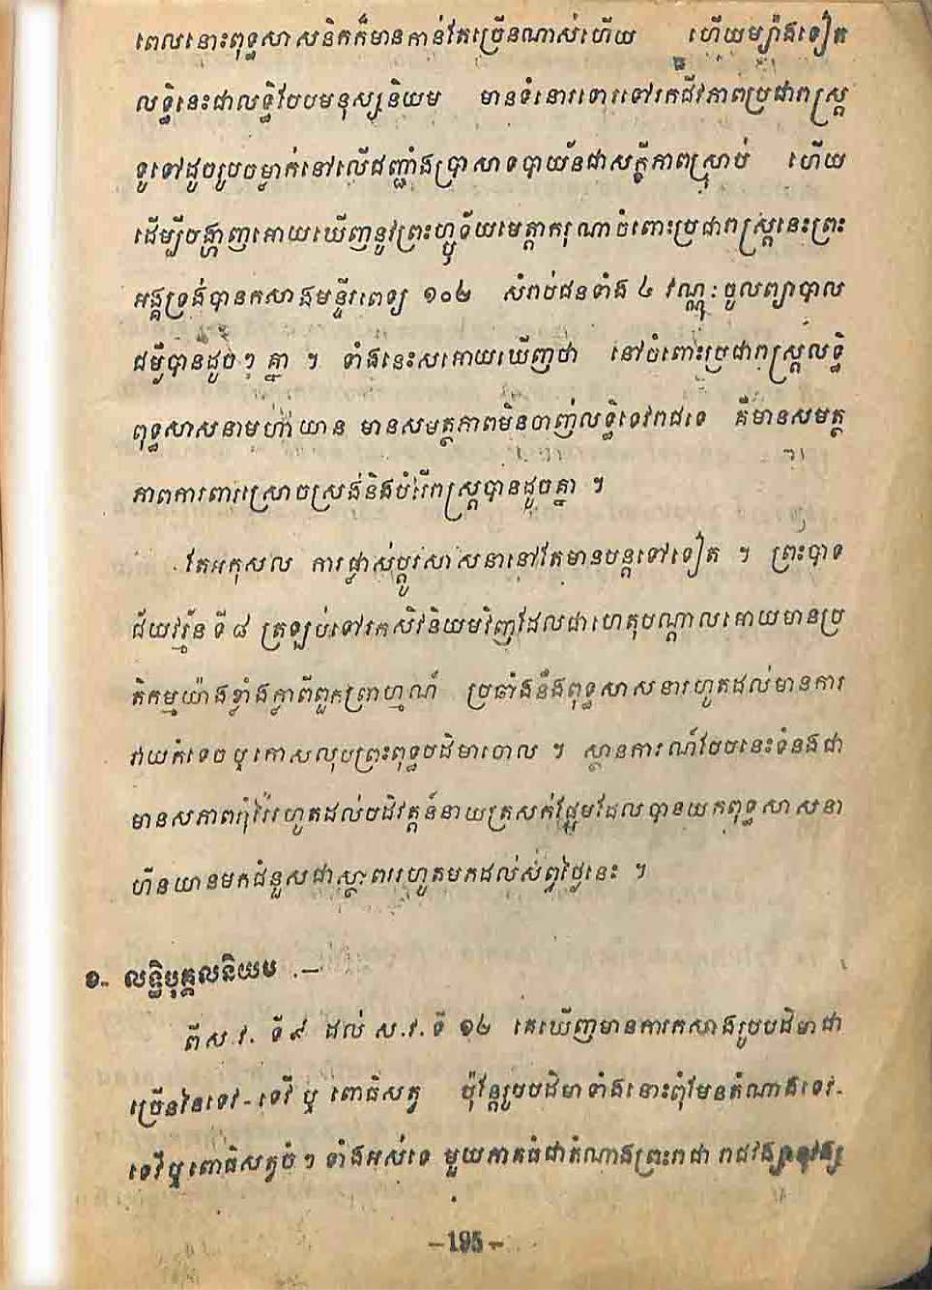 ពេលនោះពុទ្ធសាសនិកក៏មានកាន់តែច្រើនណាស់ហើយ ហើយម្យ៉ាងទៀត
លទ្ធិនេះជាលទ្ធិបែបមនុស្សនិយម មានទំនោរទោរទៅរកជីវភាពប្រជារាស្ត្រ
ទូទៅដូចរូបចម្លាក់នៅលើជញ្ជាំងប្រាសាទបាយ័នជាសក្ខីភាពស្រាប់ ហើយ
ដើម្បីបង្ហាញអោយឃើញនូវព្រះហ្ឫទ័យមេត្តាករុណាចំពោះប្រជារាស្ត្រនេះព្រះ
អង្គទ្រង់បានកសាងមន្ទីរពេទ្យ ១០២ សំរាប់ជនទាំង ៤ វណ្ណៈចូលព្យាបាល
ជម្ងឺបានដូចៗ គ្នា ។ ទាំងនេះសអោយឃើញថា នៅចំពោះប្រជារាស្ត្រលទ្ធិ
ពុទ្ធសាសនាមហាយាន មានសមត្ថភាពមិនចាញ់លទ្ធិទេវរាជទេ គឺមានសមត្ថ
ភាពការពារស្រោចស្រង់និងបំរើរាស្ត្របានដូចគ្នា ។
តែអកុសល ការផ្លាស់ប្តូរសាសនានៅតែមានបន្តទៅទៀត ។ ព្រះបាទ
ជ័យវរ្ម័ន ទី ៨ ត្រឡប់ទៅរកសិវនិយមវិញដែលជាហេតុបណ្តាលអោយមានប្រ
តិកម្មយ៉ាងខ្លាំងក្លាពីពួកព្រាហ្មណ៍ ប្រឆាំងនឹងពុទ្ធសាសនារហូតដល់មានការ
វាយកំទេច ឬ កោសលុបព្រះពុទ្ធបដិមាចោល ។ ស្ថានការណ៍បែបនេះទំនងជា
មានសភាពរ៉ាំរ៉ៃរហូតដល់បដិវត្តន៍នាយត្រសក់ផ្អែមដែលបានយកពុទ្ធសាសនា
ហីនយានមកជំនួសជាស្ថាពររហូតមកដល់សព្វថ្ងៃនេះ ។
ខ.. លទ្ធិបុគ្គលនិយម .—
ពីស.វ. ទី ៩ ដល់ ស.វ.ទី ១២ គេឃើញមានការកសាងរូបបដិមាជា
ច្រើននៃទេវ-ទេវី ឬ ពោធិសត្វ ប៉ុន្តែរូបបដិមាទាំងនោះពុំមែនតំណាងទេវ-
ទេវីឬពោធិសត្វចំៗ ទាំងអស់ទេ មួយភាគធំជាតំណាងព្រះរាជា រាជវង្ស
– 195 –